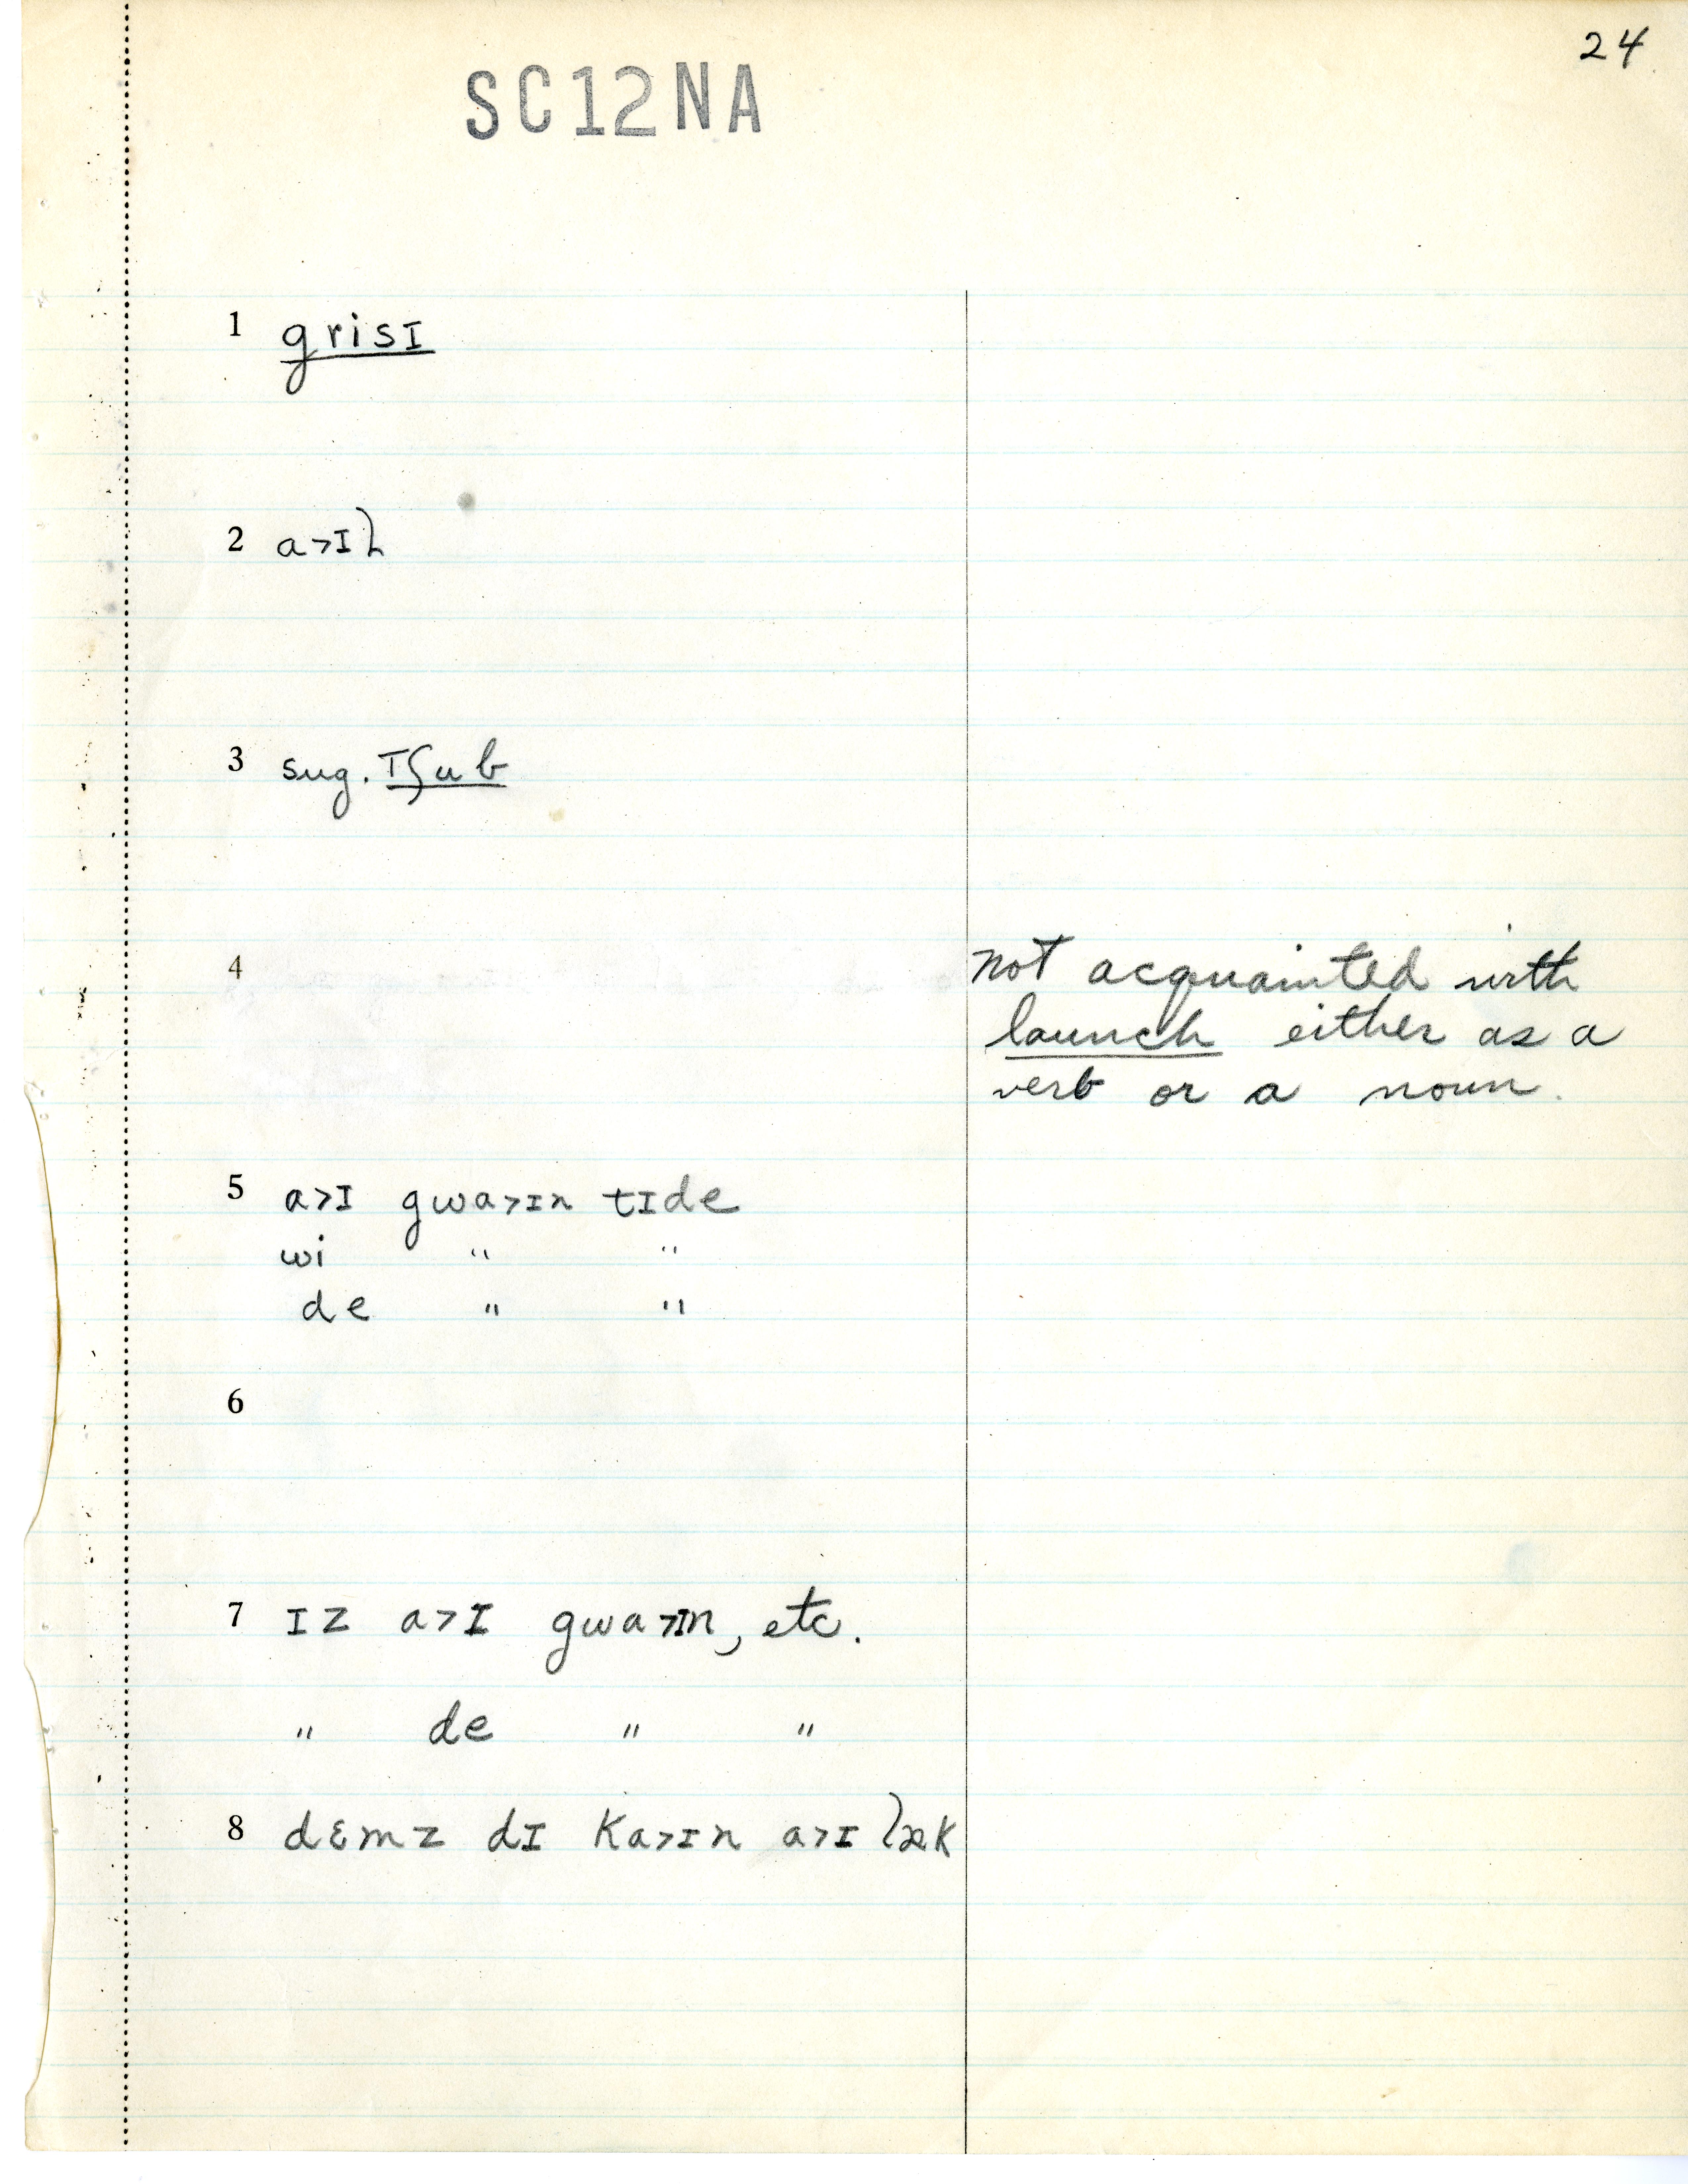 24
SC12NA
1 grisɪ
2 a>ɪl
3 sug. ɪʃub
4 not acquainted with
launch either as a
verb or a noun.
5 a>ɪ gwa>ɪn tɪde
wi " "
de " "
6
7 ɪz a>ɪ gwa>ɪn, etc.
" de " "
8 dɛmz dɪ ka>ɪn a>ɪ læk